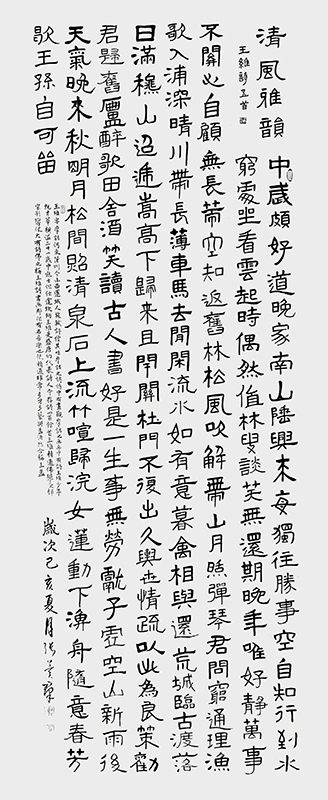 清風雅韻
王維詩五首
中歲頗好道晚家南山陲興來每獨往勝事空自知行到水
窮處坐看雲起時偶然值林叟談笑無還期晚年唯好靜萬事
不關心自顧無長策空知返舊林松風吹解帶山月照彈琴君問窮通理漁
歌入浦深晴川帶長薄車馬去閒閒流水如有意暮禽相與還荒城臨古渡落
日滿穐山迢遞嵩高下歸來且閉關杜門不復出久與世情疏以此為良策勸
君歸舊廬醉歌田舍酒笑讀古人書好是一生事無勞獻子虛空山新雨後
天氣晚來秋明月松間照清泉石上流竹喧歸浣女蓮動下漁舟隨意春芳
歇王孫自可留
歲次己亥夏月張